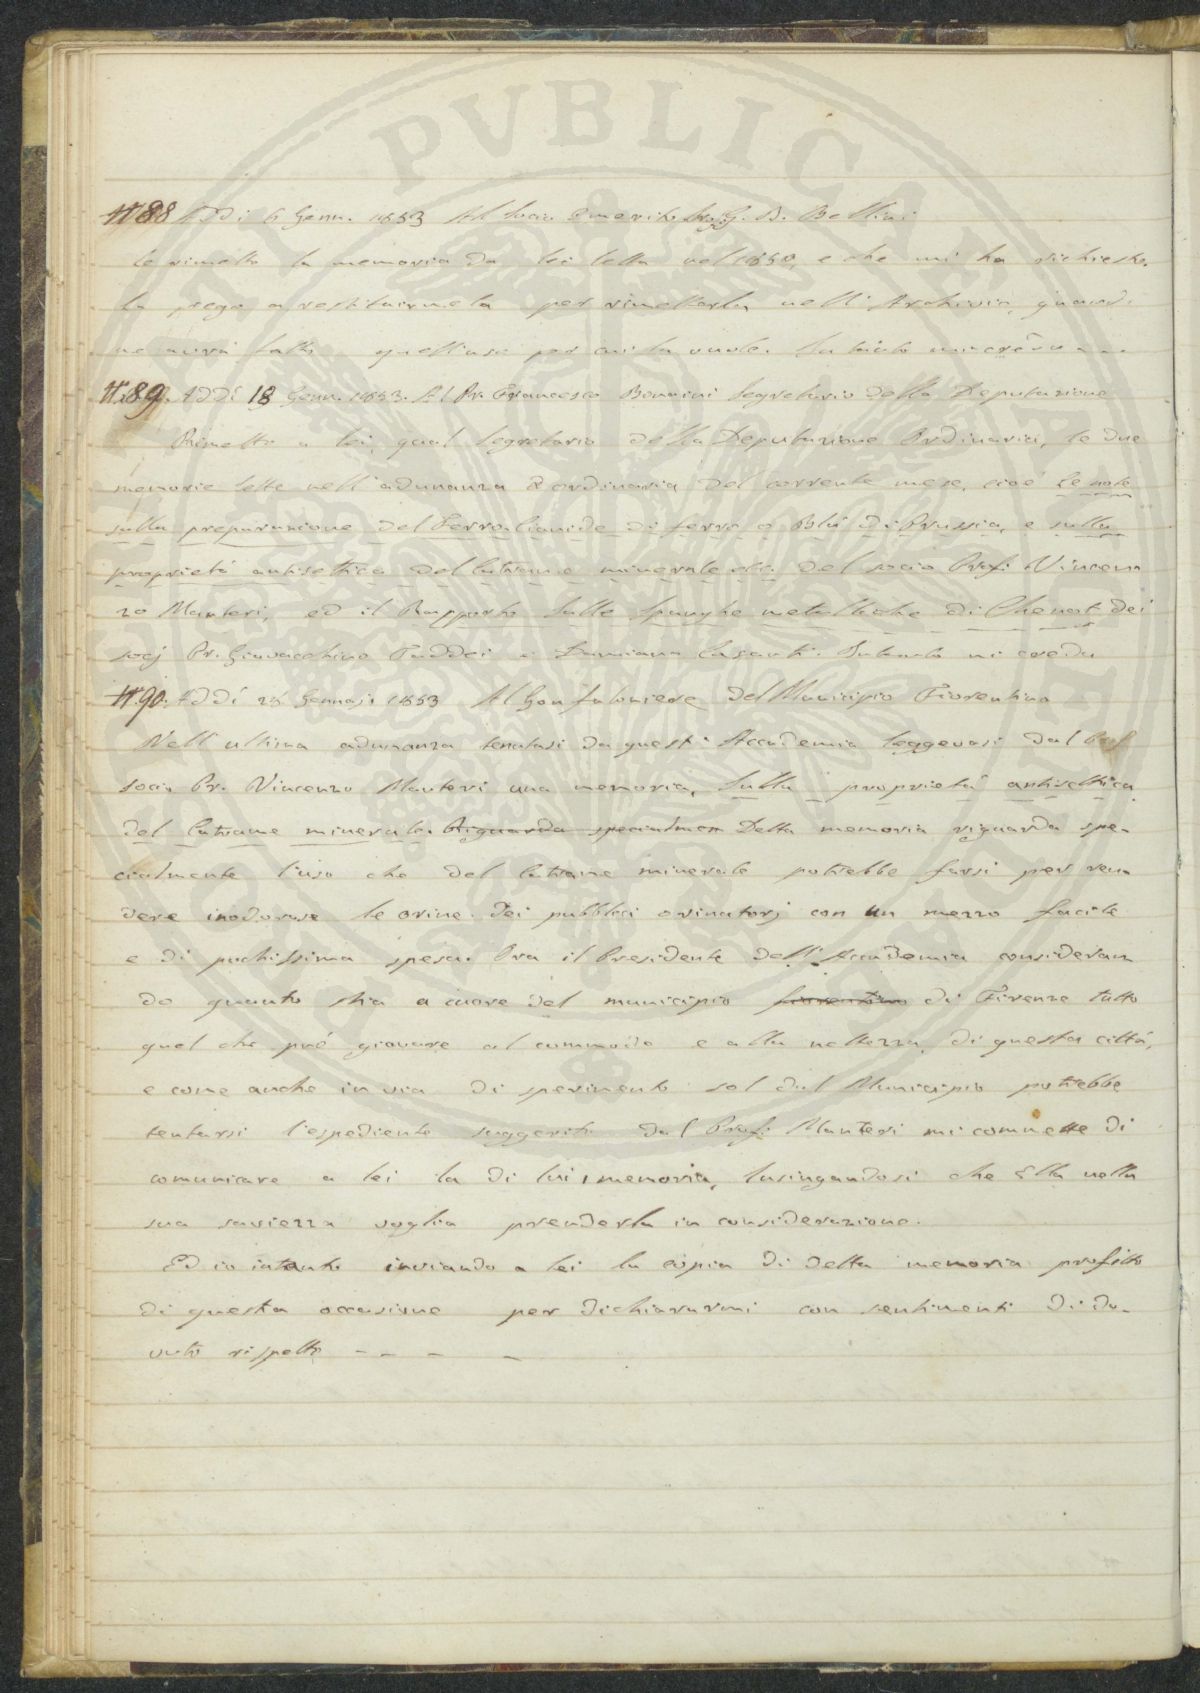 PVBLICAE
#88 Addì 6 Genn. 1853 Al Socio Emerito Sig. G. B. Bellini
Le rimetto la memoria da lei letta nel 1850, e che mi ha richiesto.
La prego a restituirmela per rimetterla nell'Archivio, quando
ne avrà fatto quell'uso per cui la vuole. Intanto mi credo - - -
#89. Addì 18 Genn. 1853. Al Pr. Francesco Bonaini Segretario della Deputazione
Rimetto a lei, qual Segretario della Deputazione Ordinaria, le due
memorie lette nell'adunanza ordinaria del corrente mese, cioè le note
sulla preparazione del Ferro-Cianide di ferro o Blù di Prussia, e sulla
proprietà antisettica del Catrame minerale etc. del socio Prof. Vincen
zo Manteri, ed il Rapporto sulle Spunghe metalliche di Chenot dei
socj Pr. Giovacchino Taddei e Damiano Casanti. Intanto mi credo
#90. Addì 24 Gennajo 1853 Al Gonfaloniere del Municipio Fiorentino
Nell'ultima adunanza tenutasi da quest'Accademia leggevasi dal Prof
socio Pr. Vincenzo Manteri una memoria, Sulla proprietà antisettica
del Catrame minerale. Riguarda specialmen Detta memoria riguarda spe-
cialmente l'uso che del Catrame minerale potrebbe farsi per ren-
dere inodorose le orine dei pubblici orinatorj con un mezzo facile
e di pochissima spesa. Ora il Presidente dell'Accademia consideran
do quanto stia a cuore del municipio fiorentino di Firenze tutto
quel che può giovare al commodo e alla nettezza di questa città,
e come anche in via di sperimento sol dal Municipio potrebbe
tentarsi l'espediente suggerito dal Prof. Manteri mi commette di
comunicare a lei la di lui memoria, lusingandosi che Ella nella
sua saviezza voglia prenderla in considerazione.
Ed io intanto inviando a lei la copia di detta memoria profitto
di questa occasione per dichiararmi con sentimenti di do-
vuto rispetto - - - -